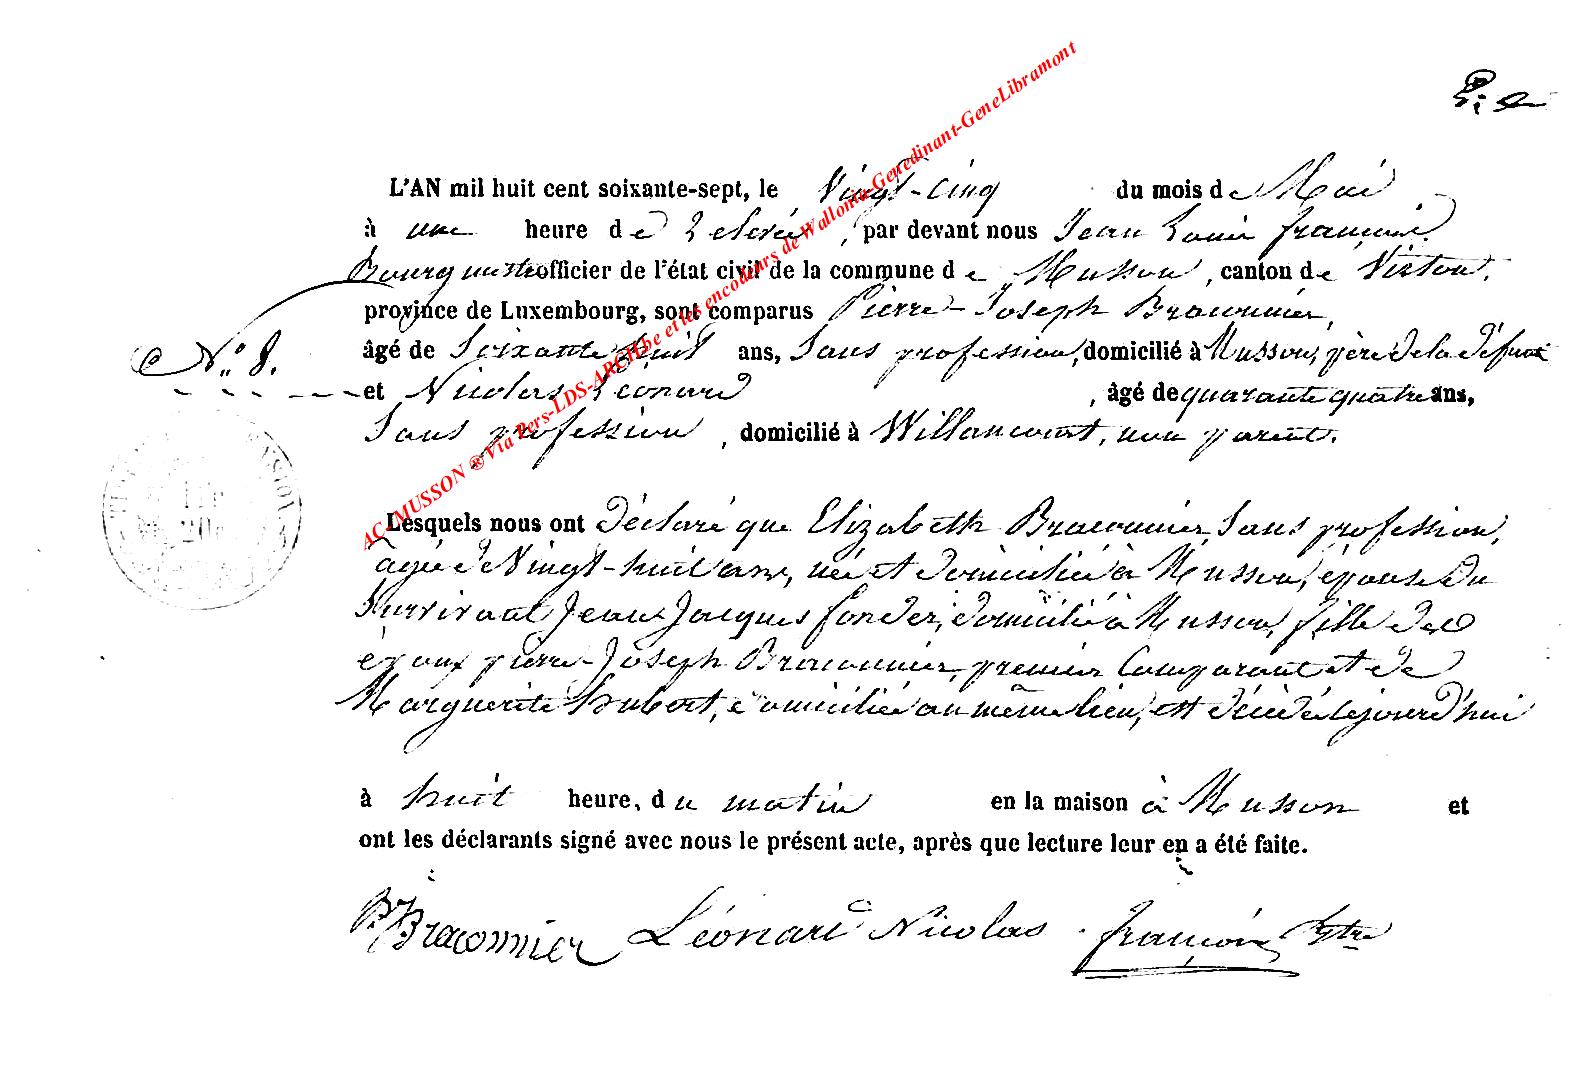 L'AN mil huit cent soixante-sept, le Vingt-Cinq du mois de Mai
à une heure de relevée, par devant nous Jean Louis françois,
Bourgmestre officier de l'état civil de la commune de Musson, canton de Virton,
province de Luxembourg, sont comparus Pierre-Joseph Braconnier,
N° 8. âgé de Soixante huit ans, Sans profession, domicilié à Musson, père de la défunte
et Nicolas Léonard, âgé de quarante quatre ans,
Sans profession, domicilié à Willancourt, non parent.
Lesquels nous ont déclaré que Elizabeth Braconnier, Sans profession,
agée de Vingt-huit ans, née et domiciliée à Musson, épouse du
Survivant Jean-Jacques Conder, domicilié à Musson, fille des
époux pierre-Joseph Braconnier, premier Comparant et de
Marguerite hubert, domiciliée au même lieu, est décédée cejourd'hui
à huit heure, du matin en la maison à Musson et
ont les déclarants signé avec nous le présent acte, après que lecture leur en a été faite.
P. J. Braconnier Léonard Nicolas françois Bgtre
AC-MUSSON ® Via Pers-LDS-ARCH.be et les encodeurs de Wallonia-Genedinant-GeneLibramont